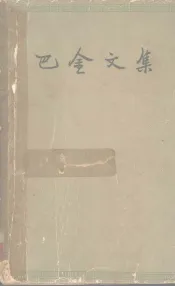 巴金文集